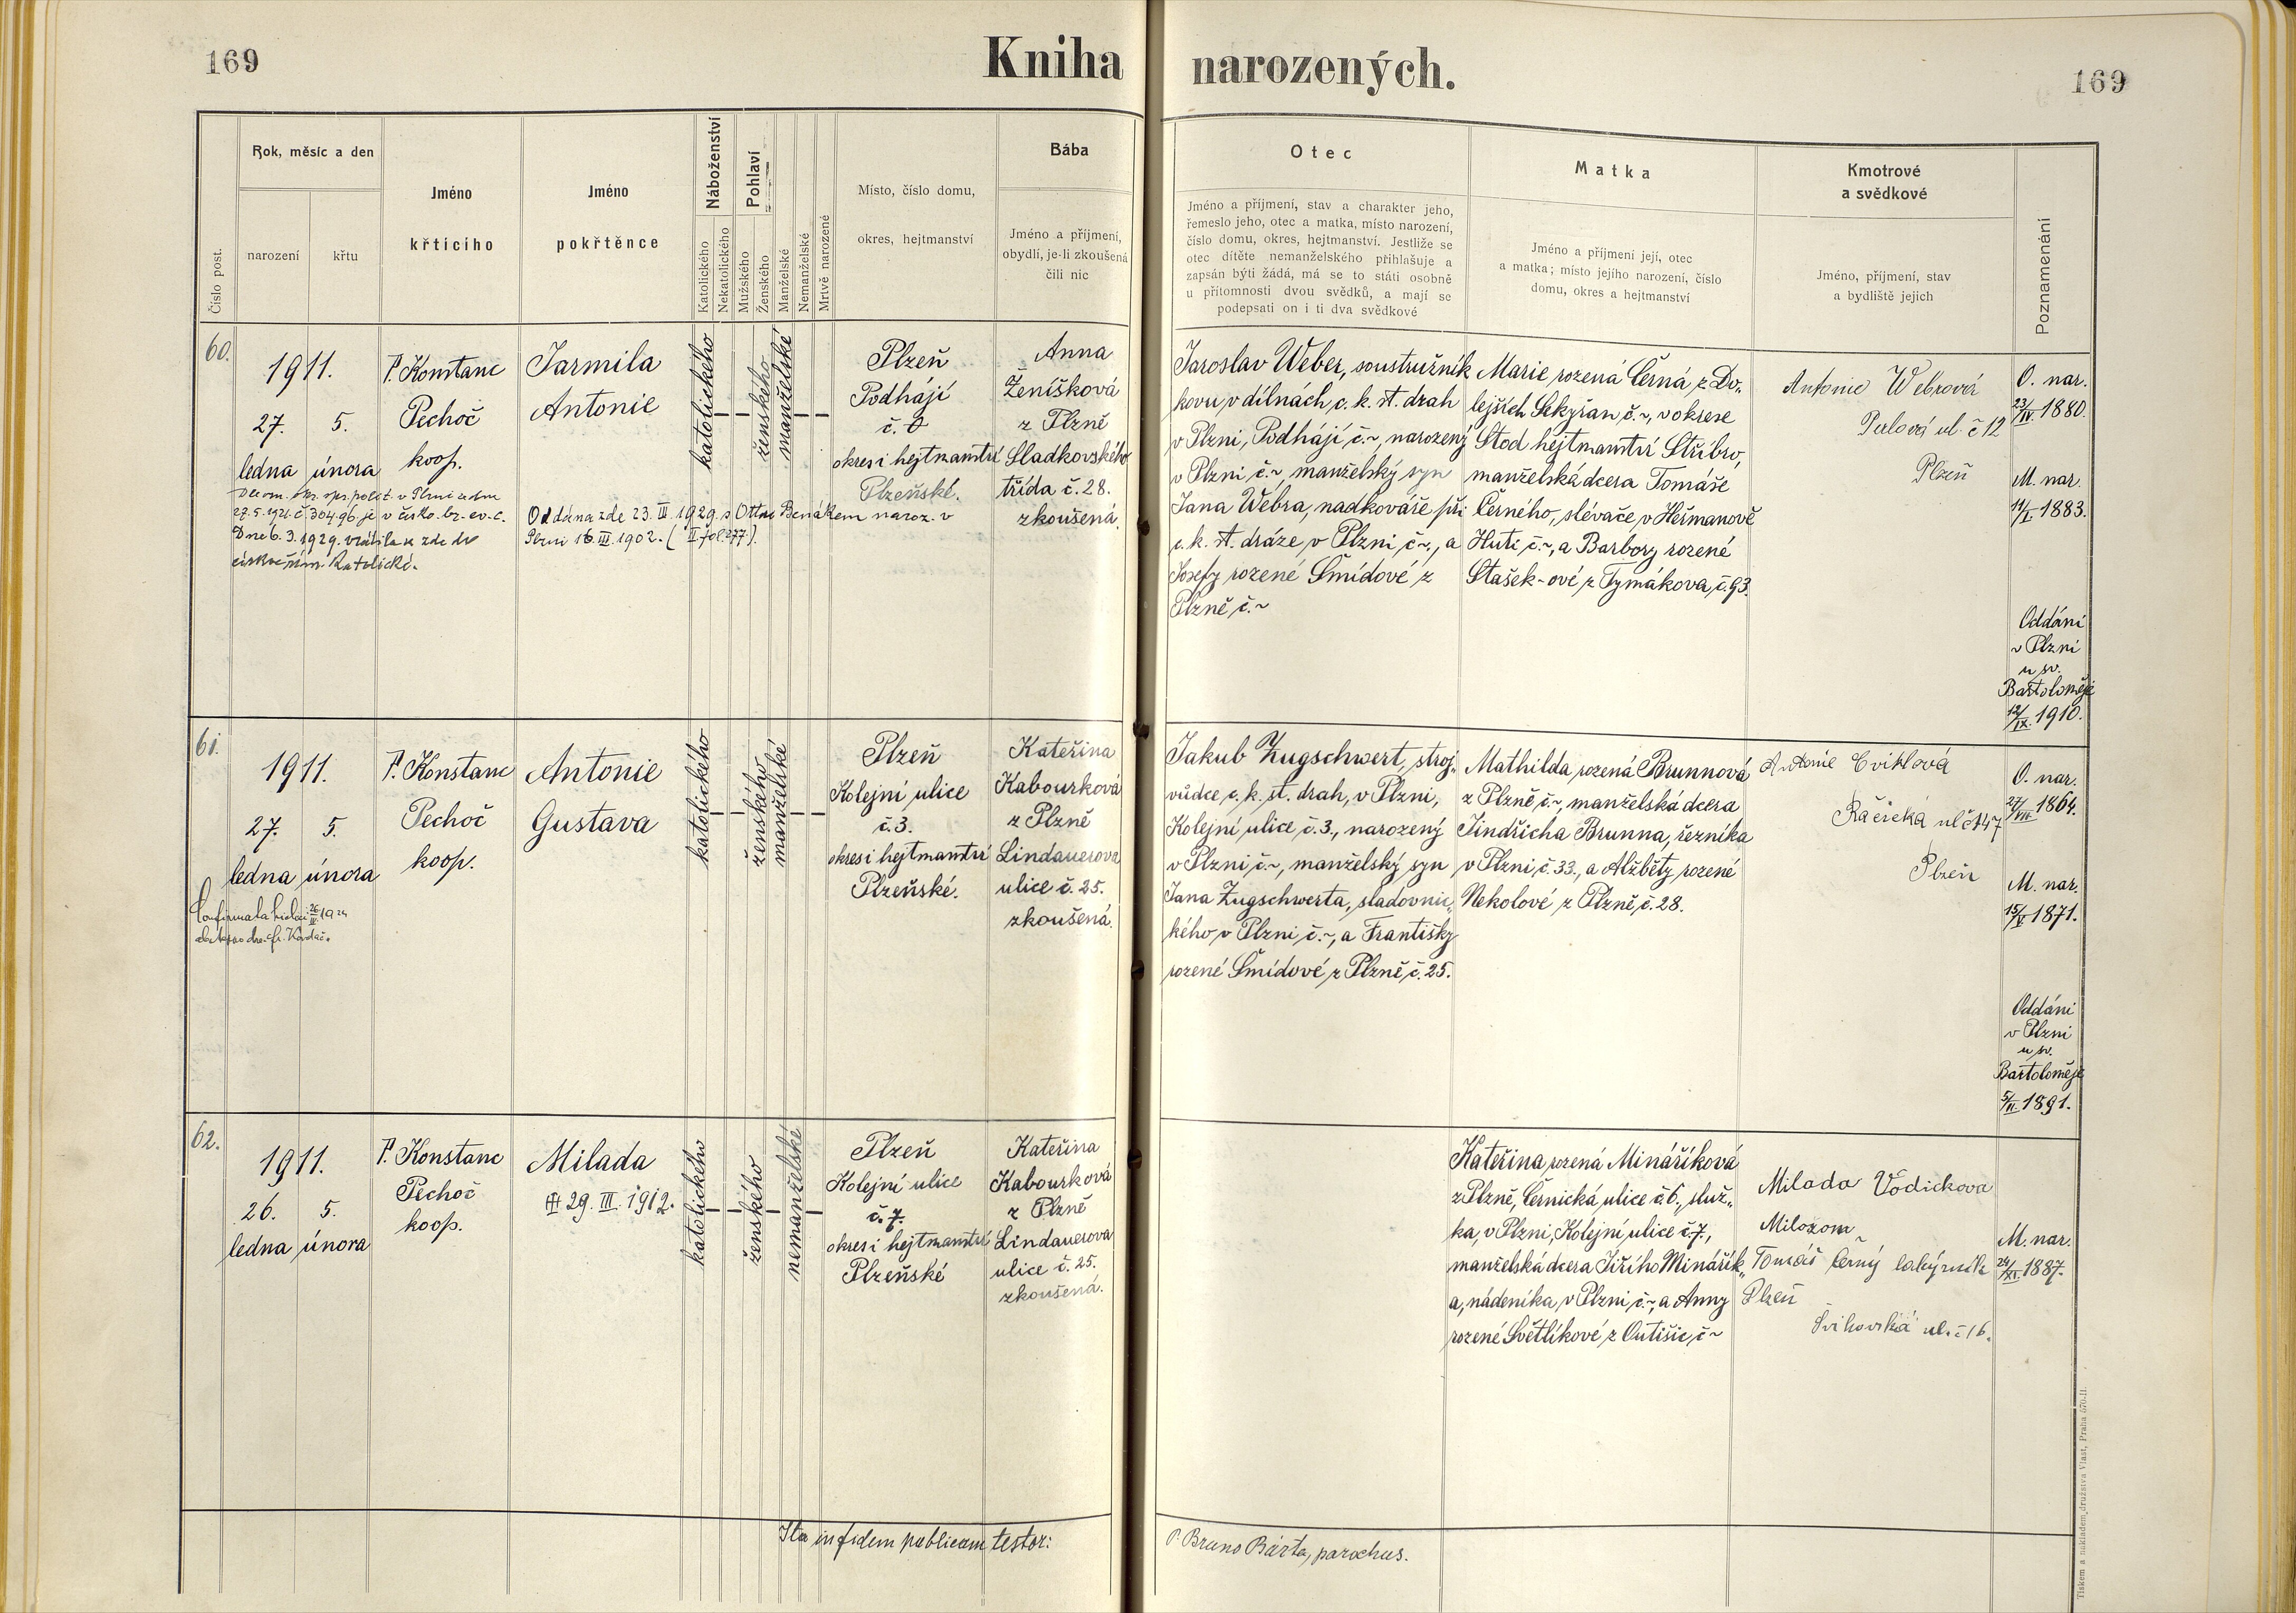 169
Kniha narozených.
169
Číslo post.
Rok, měsíc a den
narození
křtu
Jméno
křtícího
Jméno
pokřtěnce
Náboženství
Katolického
Nekatolického
Pohlaví
Mužského
Ženského
Manželské
Nemanželské
Mrtvě narozené
Místo, číslo domu,
okres, hejtmanství
Bába
Jméno a příjmení,
obydlí, je-li zkoušená
čili nic
Otec
Jméno a příjmení, stav a charakter jeho,
řemeslo jeho, otec a matka, místo narození,
číslo domu, okres, hejtmanství. Jestliže se
otec dítěte nemanželského přihlašuje a
zapsán býti žádá, má se to státi osobně
u přítomnosti dvou svědků, a mají se
podepsati on i ti dva svědkové
Matka
Jméno a příjmení její, otec
a matka; místo jejího narození, číslo
domu, okres a hejtmanství
Kmotrové
a svědkové
Jméno, příjmení, stav
a bydliště jejich
Poznamenání
60.
1911.
27. 5.
ledna února
27.5.1921. č. 30496 je v česko. br. ev. c.
Dne 6. 3. 1929. vrátila se zde do
církve římsk. Katolické.
P. Konstanc
Pechoč
koop.
Jarmila
Antonie
Oddána zde 23. III. 1929. s Ottou Benákem naroz. v
Plzni 16. III. 1902. (II fol. 277.).
katolického
ženského
manželské
Plzeň
Podhájí
č. 0
okres i hejtmanství
Plzeňské.
Anna
Ženíšková
z Plzně
Sladkovského
třída č. 28.
zkoušená.
Jaroslav Weber, soustružník
kovu v dílnách c. k. st. drah
v Plzni, Podhájí č. ~, narozený
v Plzni č. ~, manželský syn
Jana Webra, nadkováře při
c. k. st. dráze v Plzni č. ~, a
Josefy rozené Šmídové z
Plzně č. ~
Marie rozená Černá z Do-
lejších Sekyřan č. ~, v okrese
Stod hejtmanství Stříbro,
manželská dcera Tomáše
Černého, slévače, v Heřmanově
Huti č. ~, a Barbory rozené
Stašek-ové z Tymákova, č. 93.
Antonie Webrová
Perlová ul. č 12
Plzeň
O. nar.
23/IV. 1880.
M. nar.
11/I. 1883.
Oddáni
v Plzni
u sv.
Bartoloměje
12/IX. 1910.
61.
1911.
27. 5.
ledna února
P. Konstanc
Pechoč
koop.
Antonie
Gustava
katolického
ženského
manželské
Plzeň
Kolejní ulice
č. 3.
okres i hejtmanství
Plzeňské.
Kateřina
Kabourková
z Plzně
Lindauerova
ulice č. 25.
zkoušená.
Jakub Zugschwert, stroj-
vůdce c. k. st. drah, v Plzni,
Kolejní ulice č. 3., narozený
v Plzni č. ~, manželský syn
Jana Zugschwerta, sladovnic-
kého v Plzni č. ~, a Františky
rozené Šmídové z Plzně č. 25.
Mathilda rozená Brunnová
z Plzně č. ~, manželská dcera
Jindřicha Brunna, řezníka
v Plzni č. 33., a Alžběty rozené
Nekolové z Plzně č. 28.
Antonie Cviklová
ul č 147
Plzeň
O. nar.
27/VII. 1864.
M. nar.
15/V. 1871.
Oddáni
v Plzni
u sv.
Bartoloměje
1891.
62.
1911.
26. 5.
ledna února
P. Konstanc
Pechoč
koop.
Milada
29. III. 1912.
katolického
ženského
nemanželské
Plzeň
Kolejní ulice
č. 7.
okres i hejtmanství
Plzeňské
Kateřina
Kabourková
z Plzně
Lindauerova
ulice č. 25.
zkoušená.
Kateřina rozená Mináříková
z Plzně, Černická ulice č. 6., služ-
ka, v Plzni, Kolejní ulice č. 7.,
manželská dcera Jiřího Minářík-
a, nádeníka, v Plzni č. ~, a Anny
rozené Světlíkové z Outišic, č ~
Milada Vodickova
Tomáš Černý
Plzeň
Švihovská ul. č 16.
M. nar.
24/XI. 1887.
Ita in fidem publicam testor:
P. Bruno Bárta, parochus.
Tiskem a nákladem družstva Vlast, Praha 570-II.